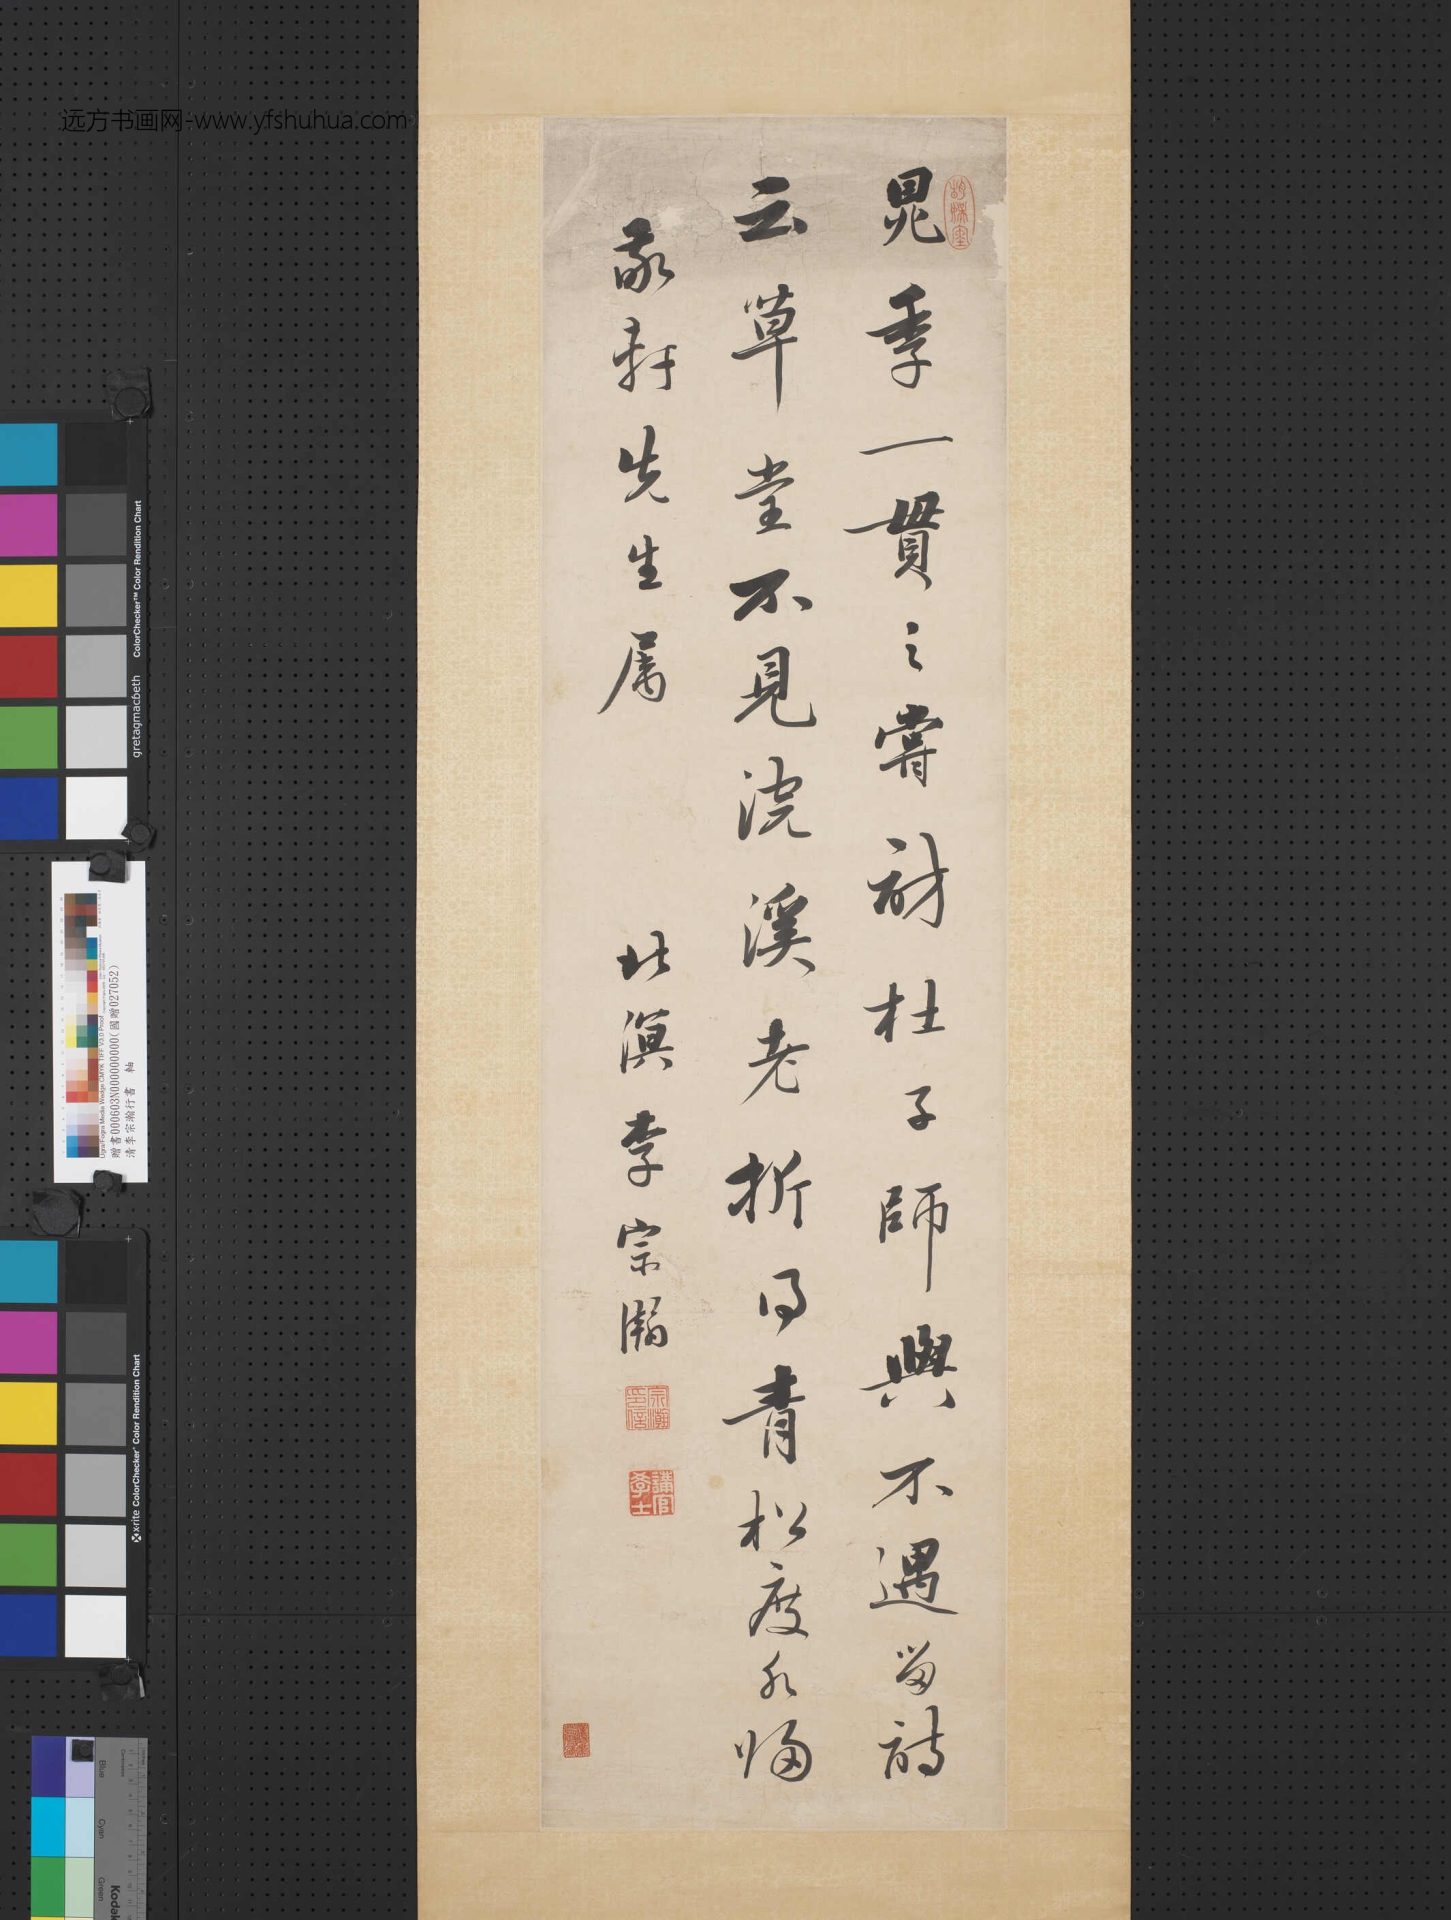 远方书画网-www.yfshuhua.com
晁季一貫之嘗訪杜子師輿不遇留詩
云草堂不見浣溪老折得青松度水歸
敬軒先生屬
北溟李宗瀚
宗瀚印信
講官學士
ColorChecker™ Color Rendition Chart
gretagmacbeth
贈書000603N000000000(國贈027052)
清李宗瀚行書 軸
Ugra/Fogra Media Wedge CMYK TIFF V3.0 Proof
x-rite ColorChecker® Color Rendition Chart
Blue
Cyan
Green
Kodak